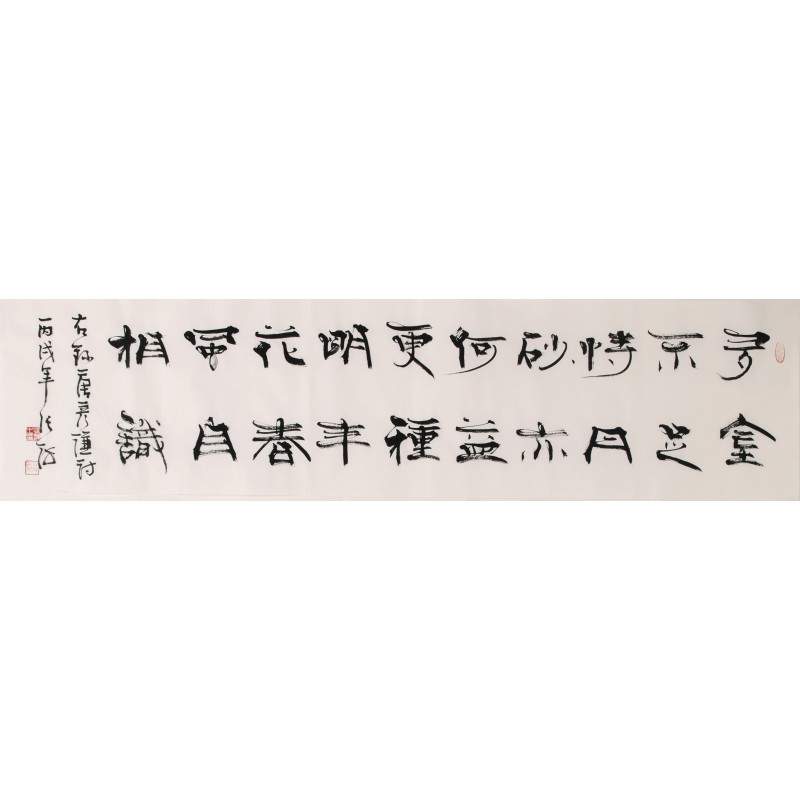 多金
不足
恃丹
砂亦
何益
更種
明年
花春
風自
相識
右録唐彥謙詩
丙戌年